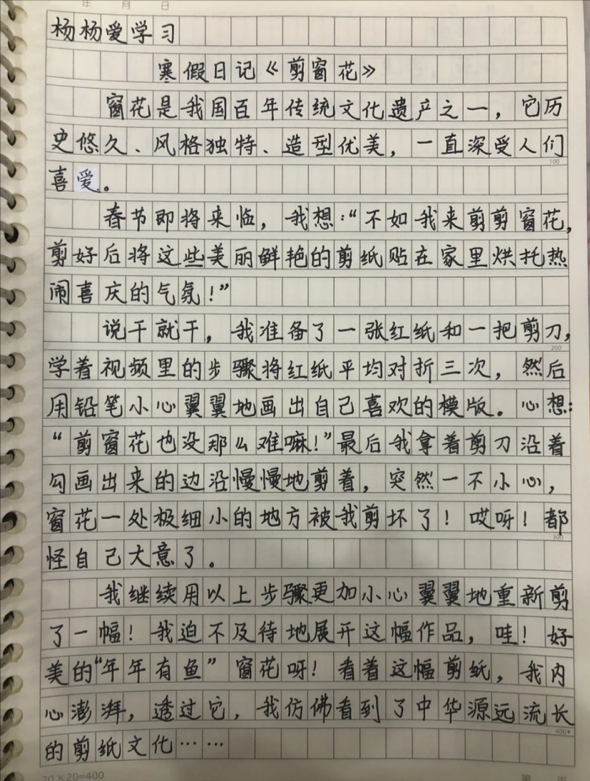 年 月 日
杨杨爱学习
寒假日记《剪窗花》
窗花是我国百年传统文化遗产之一，它历
史悠久、风格独特、造型优美，一直深受人们
喜爱。
100
春节即将来临，我想：“不如我来剪剪窗花，
剪好后将这些美丽鲜艳的剪纸贴在家里烘托热
闹喜庆的气氛！”
说干就干，我准备了一张红纸和一把剪刀，
200
学着视频里的步骤将红纸平均对折三次，然后
用铅笔小心翼翼地画出自己喜欢的模版。心想：
“剪窗花也没那么难嘛！”最后我拿着剪刀沿着
勾画出来的边沿慢慢地剪着，突然一不小心，
窗花一处极细小的地方被我剪坏了！哎呀！都
300
怪自己大意了。
我继续用以上步骤更加小心翼翼地重新剪
了一幅！我迫不及待地展开这幅作品，哇！好
美的“年年有鱼”窗花呀！看着这幅剪纸，我内
心澎湃，透过它，我仿佛看到了中华源远流长
400
的剪纸文化……
20×20=400